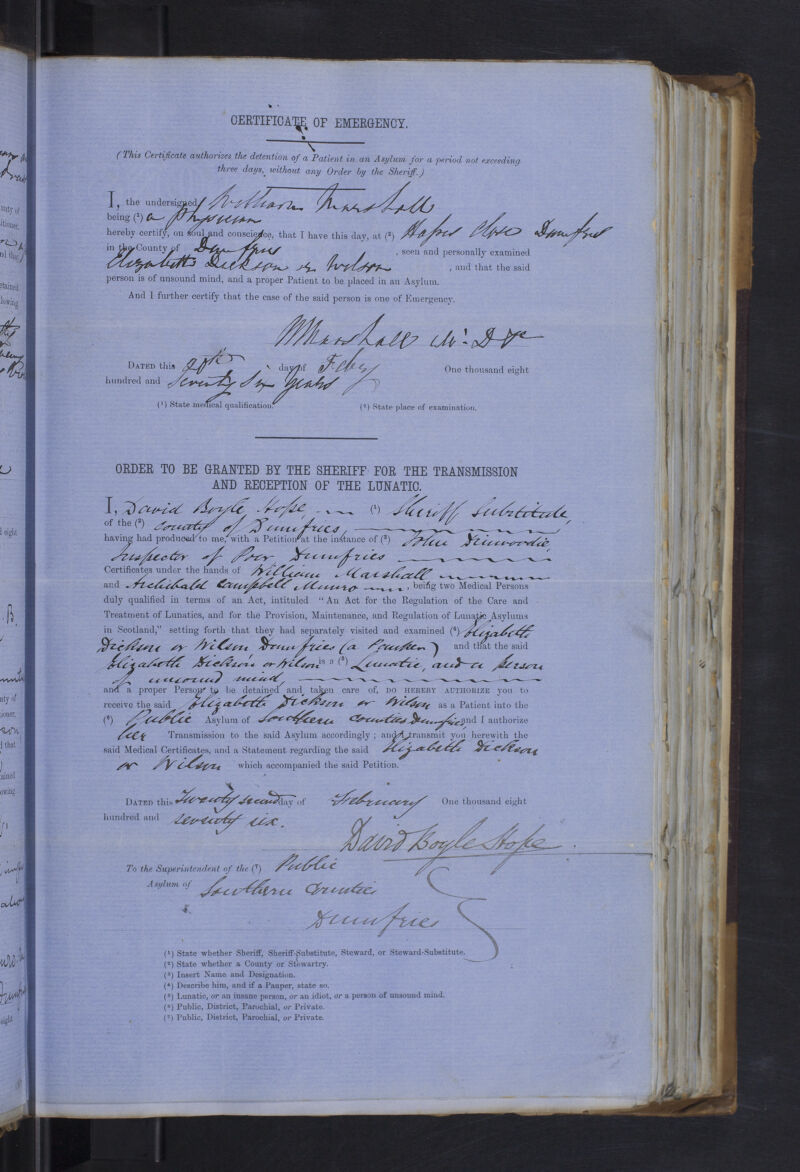 CERTIFICATE OF EMERGENCY.
(This Certificate authorizes the detention of a Patient in an Asylum for a period not exceeding
three days, without any Order by the Sheriff.)
I, the undersigned William Marshall
being (¹) a Physician
hereby certify, on soul and conscience, that I have this day, at (²) Close Dumfries
in the County of Dumfries, seen and personally examined
Elizabeth Dickson or Wilson, and that the said
person is of unsound mind, and a proper Patient to be placed in an Asylum.
And I further certify that the case of the said person is one of Emergency.
W Marshall M.D &c
DATED this day of Feby One thousand eight
hundred and Seventy Six years
(¹) State medical qualification. (²) State place of examination.
ORDER TO BE GRANTED BY THE SHERIFF FOR THE TRANSMISSION
AND RECEPTION OF THE LUNATIC.
I, David Boyle Hope (¹) Sheriff Substitute,
of the (²) County of Dumfries,
having had produced to me, with a Petition at the instance of (³) John Dinwoodie,
Inspector of Poor Dumfries
Certificates under the hands of William Marshall
and Archibald Campbell Munro, being two Medical Persons
duly qualified in terms of an Act, intituled "An Act for the Regulation of the Care and
Treatment of Lunatics, and for the Provision, Maintenance, and Regulation of Lunatic Asylums
in Scotland," setting forth that they had separately visited and examined (⁴) Elizabeth
Dickson or Wilson Dumfries (a Pauper) and that the said
Elizabeth Dickson or Wilson is a (⁵) Lunatic, and a person
of unsound mind,
and a proper Person to be detained and taken care of, DO HEREBY AUTHORIZE you to
receive the said Elizabeth Dickson or Wilson as a Patient into the
(⁶) Public Asylum of Southern Counties Dumfries and I authorize
her Transmission to the said Asylum accordingly; and I transmit you herewith the
said Medical Certificates, and a Statement regarding the said Elizabeth Dickson
or Wilson which accompanied the said Petition.
DATED this Twenty second day of February One thousand eight
hundred and seventy six.
David Boyle Hope
To the Superintendent of the (⁷) Public
Asylum of Southern Counties
Dumfries
(¹) State whether Sheriff, Sheriff-Substitute, Steward, or Steward-Substitute.
(²) State whether a County or Stewartry.
(³) Insert Name and Designation.
(⁴) Describe him, and if a Pauper, state so.
(⁵) Lunatic, or an insane person, or an idiot, or a person of unsound mind.
(⁶) Public, District, Parochial, or Private.
(⁷) Public, District, Parochial, or Private.